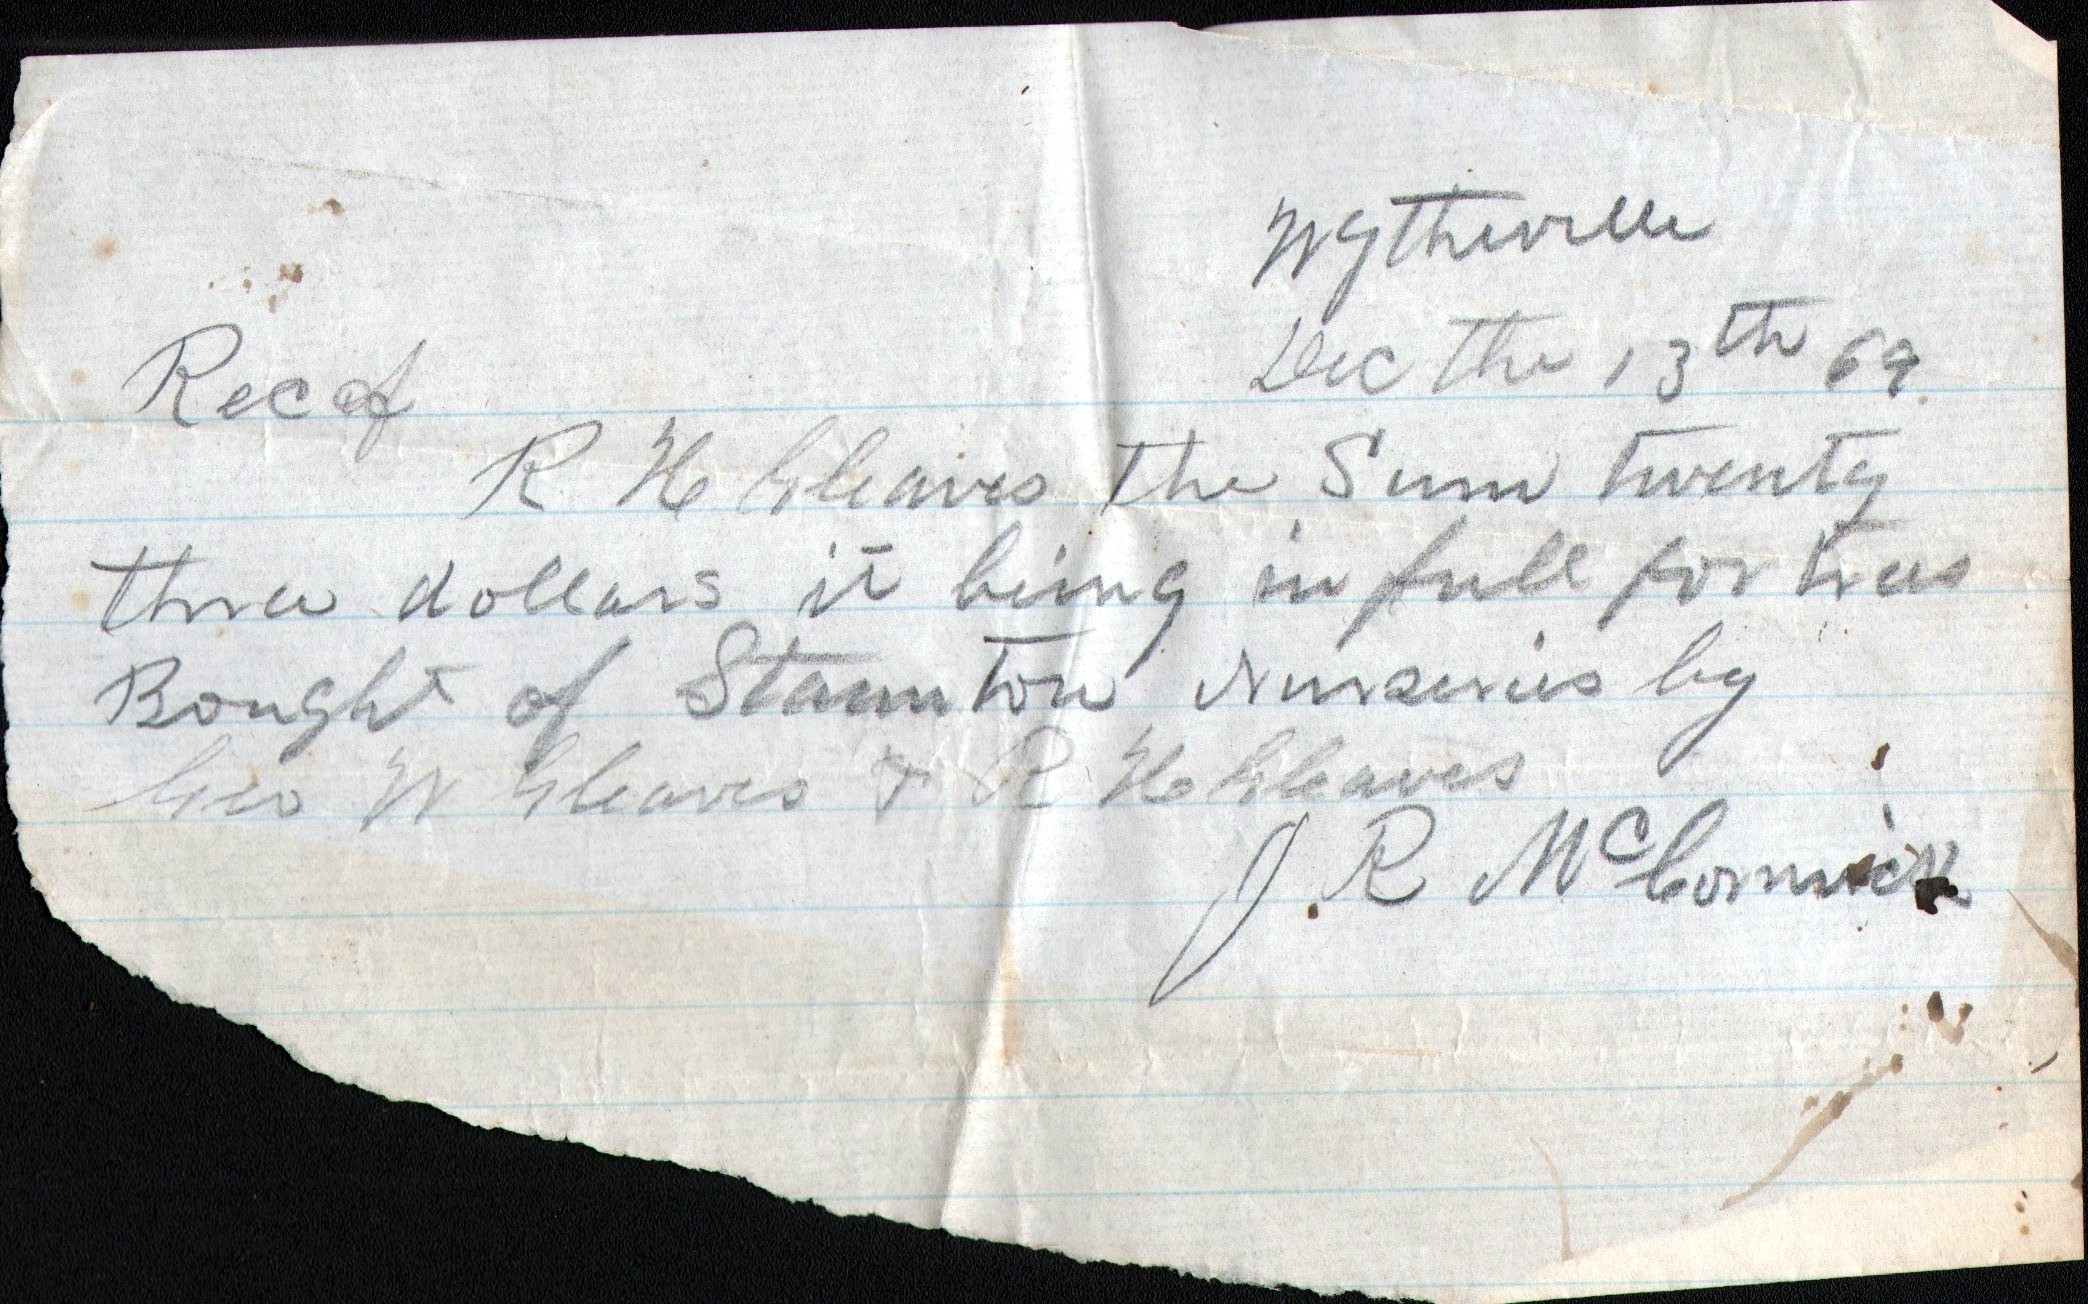 Wytheville
Dec the 13th 69
Recd of
R H Gleaves the Sum twenty
three dollars it being in full for trees
Bought of Staunton Nurseries by
Geo W Gleaves & R H Gleaves
J. R McCormick